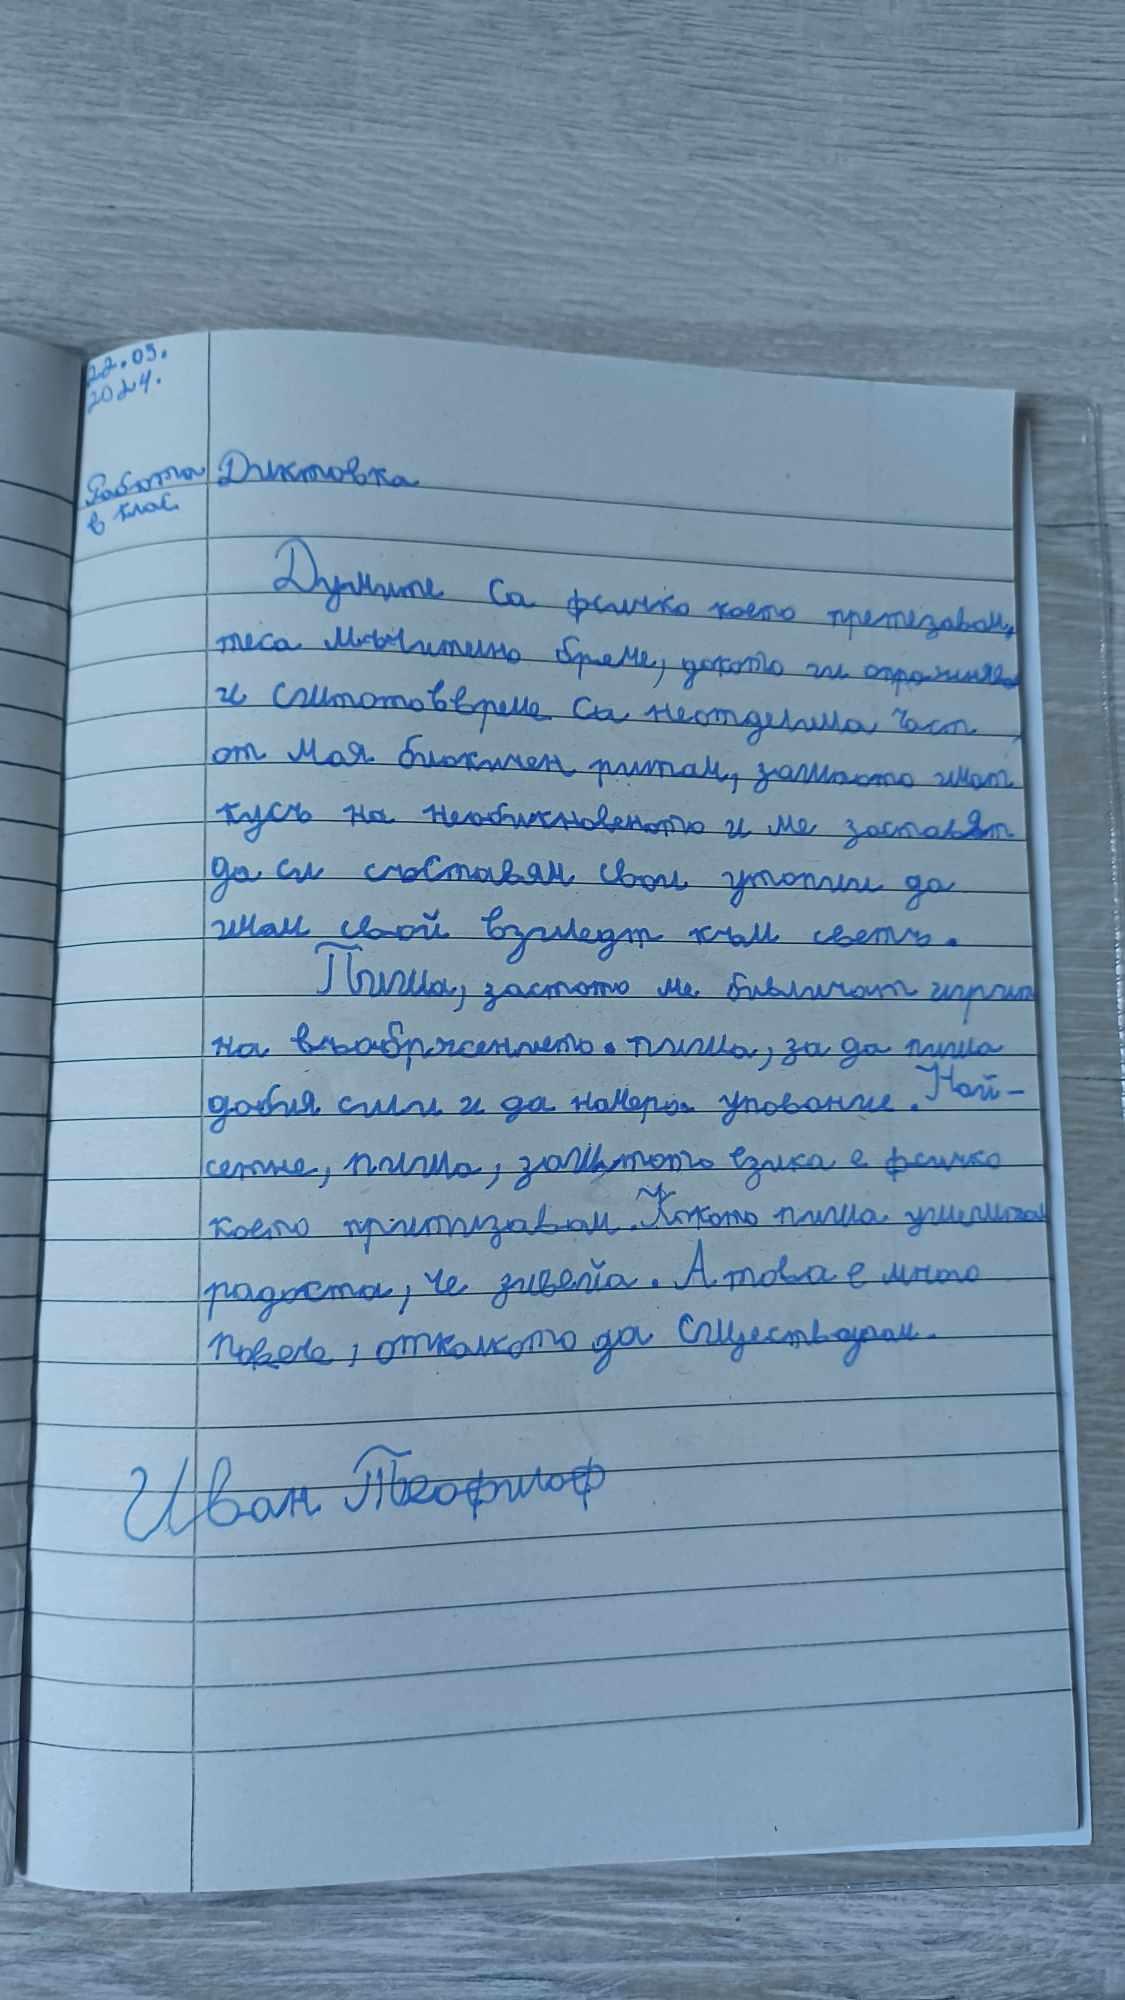 22.05.
2024.
Работа
в клас
Диктовка
Думите са фсичко което претезавам,
теса мъчително бреме, докото ги
и съштотовреме са неотделима част
от моя биохимен ритам, зашшото имат
кусъ на необикновеното и ме заставят
да си съставям свои утопии да
имам свой взгледт към светъ.
Пиша, застото ме бивличат игрите
на въабръжението. пиша, за да пиша
добия сили и да намеря упование. Най-
сетне, пиша, защтото езика е фсичко
което притизавам. Когото пиша
радоста, че зивейа. А това е много
повече, отколкото да съществувам.
Иван Теофилоф